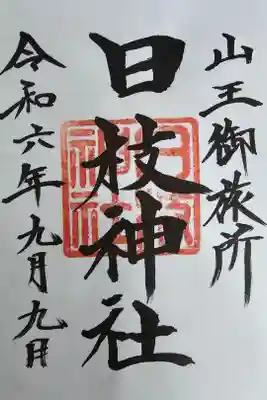 山王御旅所
日枝神社
令和六年九月九日
日枝神社